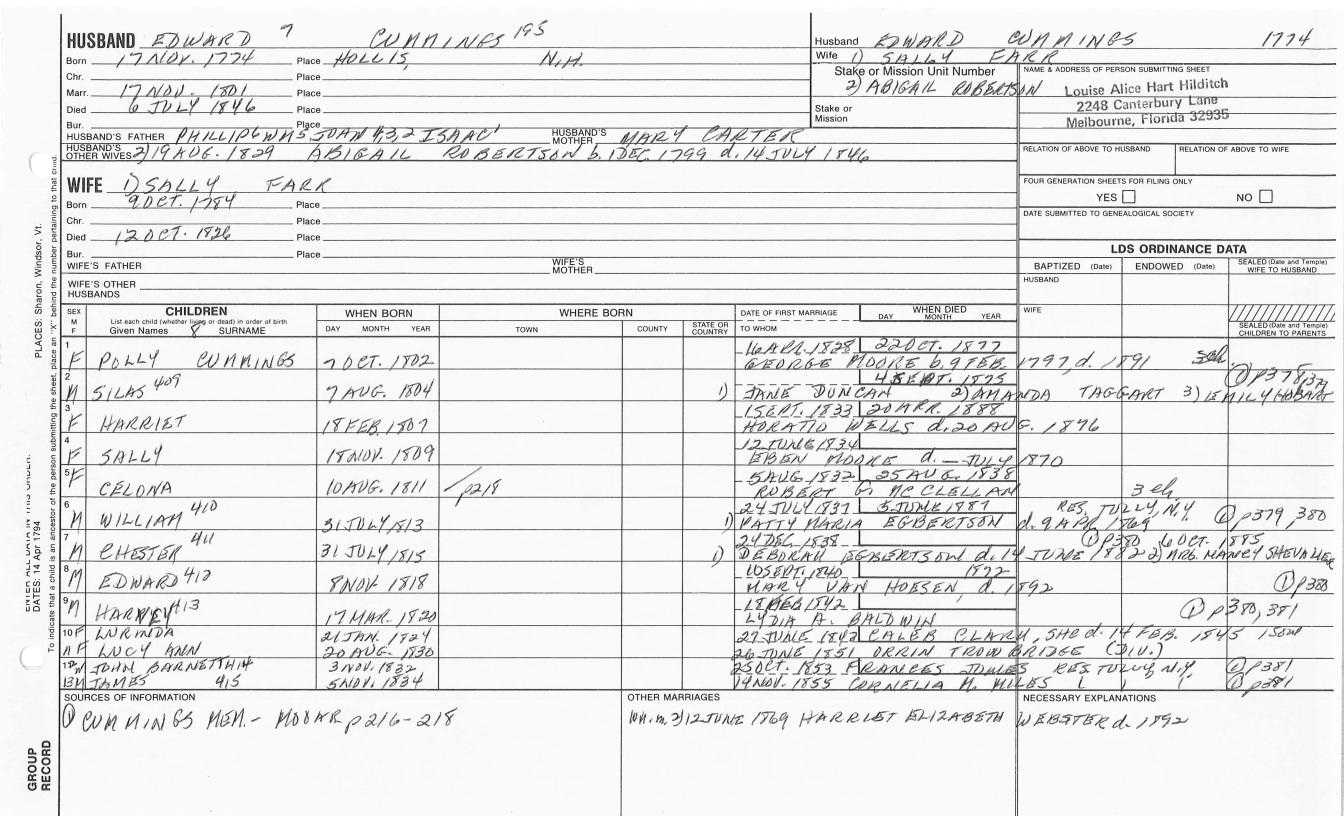 HUSBAND EDWARD 7 CUMMINGS 195
Born 17 NOV. 1774 Place HOLLIS, N.H.
Chr. Place
Marr. 17 NOV. 1801 Place
Died 6 JULY 1846 Place
Bur. Place
HUSBAND'S FATHER PHILLIP6 WM5 JOHN 4,3,2 ISAAC1 HUSBAND'S MOTHER MARY CARTER
HUSBAND'S OTHER WIVES 2) 19 AUG. 1829 ABIGAIL ROBERTSON b. 1 DEC. 1799 d. 14 JULY 1846
Husband EDWARD CUMMINGS 1774
Wife 1) SALLY FARR
Stake or Mission Unit Number
2) ABIGAIL ROBERTSON
Stake or Mission
NAME & ADDRESS OF PERSON SUBMITTING SHEET
Louise Alice Hart Hilditch
2248 Canterbury Lane
Melbourne, Florida 32935
RELATION OF ABOVE TO HUSBAND RELATION OF ABOVE TO WIFE
FOUR GENERATION SHEETS FOR FILING ONLY
YES NO
DATE SUBMITTED TO GENEALOGICAL SOCIETY
WIFE 1) SALLY FARR
Born 9 OCT. 1784 Place
Chr. Place
Died 12 OCT. 1826 Place
Bur. Place
WIFE'S FATHER WIFE'S MOTHER
WIFE'S OTHER HUSBANDS
LDS ORDINANCE DATA
BAPTIZED (Date) ENDOWED (Date) SEALED (Date and Temple) WIFE TO HUSBAND
HUSBAND
WIFE
SEALED (Date and Temple) CHILDREN TO PARENTS
SEX M F CHILDREN WHEN BORN WHERE BORN DATE OF FIRST MARRIAGE WHEN DIED
List each child (whether living or dead) in order of birth
Given Names 8 SURNAME DAY MONTH YEAR TOWN COUNTY STATE OR COUNTRY TO WHOM DAY MONTH YEAR
1 F POLLY CUMMINGS 7 OCT. 1802 16 APR. 1828 22 OCT. 1877
GEORGE MOORE b. 9 FEB. 1797, d. 1891 3ch.
2 M SILAS 409 7 AUG. 1804 4 SEPT. 1875 1 p378,379
1) JANE DUNCAN 2) AMANDA TAGGART 3) EMILY HOBART
3 F HARRIET 18 FEB. 1807 1 SEPT. 1833 20 APR. 1888
HORATIO WELLS d. 20 AUG. 1876
4 F SALLY 18 NOV. 1809 12 JUNE 1834
EBEN MOORE d. — JULY 1870
5 F CELONA 10 AUG. 1811 p218 5 AUG 1832 25 AUG. 1838
ROBERT G. MC CLELLAN 3 ch.
6 M WILLIAM 410 31 JULY 1813 24 JULY 1837 5 JUNE 1887 RES. TULLY, N.Y. 1 p379,380
1) PATTY MARIA EGBERTSON d. 9 APR. 1869
7 M CHESTER 411 31 JULY 1815 24 DEC 1838 1 p380 6 OCT. 1885
1) DEBORAH EGBERTSON d. 14 JUNE 1882 2) MRS. NANCY SHEVALIER
8 M EDWARD 412 8 NOV. 1818 10 SEPT. 1840 1872
MARY VAN HOESEN, d. 1892 1 p380
9 M HARVEY 413 17 MAR. 1820 18 FEB 1842 1 p380,381
LYDIA A. BALDWIN
10 F LURINDA 21 JAN. 1824 27 JUNE 1842 CALEB CLARK, SHE d. 14 FEB. 1845 1 son
11 F LUCY ANN 20 AUG. 1830 26 JUNE 1851 ORRIN TROWBRIDGE (DIV.)
12 M JOHN BARNETT 414 3 NOV. 1832 25 OCT. 1853 FRANCES JONES RES TULLY, N.Y. 1 p381
13 M JAMES 415 5 NOV. 1834 14 NOV. 1855 CORNELIA M. MILES 1 p381
SOURCES OF INFORMATION OTHER MARRIAGES NECESSARY EXPLANATIONS
1 CUMMINGS MEM. - MOOAR p216-218 Wm. m. 2) 12 JUNE 1869 HARRIET ELIZABETH WEBSTER d. 1892
PLACES: Sharon, Windsor, Vt.
ENTER ALL DATA IN THIS ORDER:
DATES: 14 Apr 1794
To indicate that a child is an ancestor of the person submitting the sheet, place an "X" behind the number pertaining to that child.
GROUP RECORD